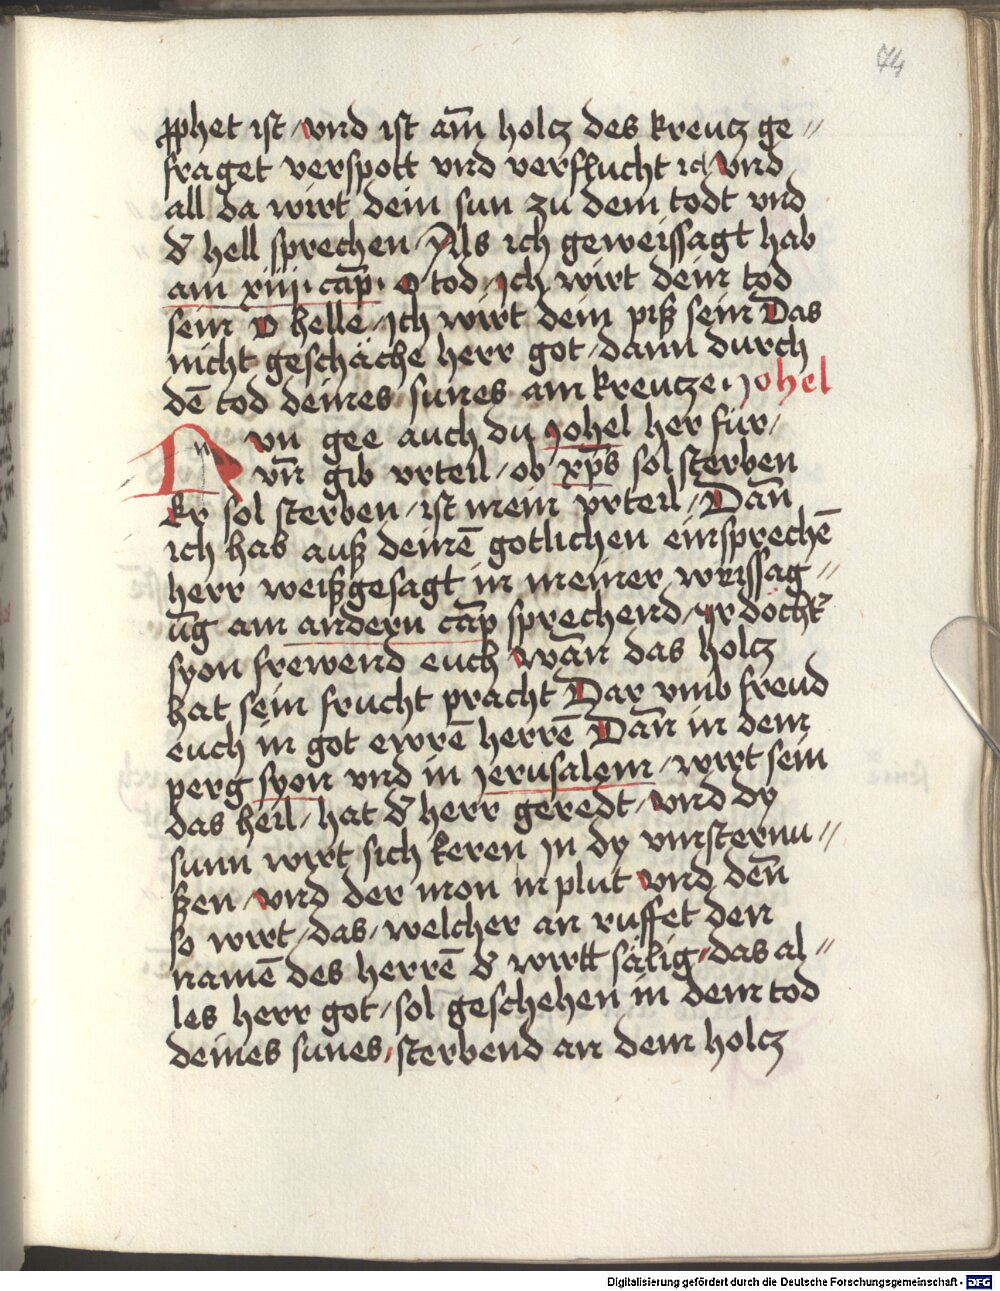 74
ꝓphet ist / vnd ist am̄ holcz des kreucz ge //
fraget verspott vnd verflucht ꝛc vnd
all da wirt dein sun zu dem todt vnd
đ hell sprechen / Als ich geweissagt hab
am xiiij. cap̄. O tod / ich wirt dein tod
sein O helle / ich wirt dein piß sein Das
nicht geschäche herr got / dann durch
dē tod deines sunes am kreucze. Johel
vn gee auch du Johel her für /
vn̄ gib vrteil / ob xp̄s sol sterben
Er sol sterben / ist mein vrteil / Dan̄
ich hab auß deinē gotlichen einsprechē
herr weißgesagt in meiner weissag //
ūg am andern cap̄ sprechend / Ir döcht'
syon frewend euch / wan̄ das holcz
hat sein frucht pracht Dar vmb freud
euch in got ewrē herrē Dan̄ in dem
perg syon vnd in jerusalem / wirt sein
das heil / hat đ herr geredt / vnd dy
sunn wirt sich keren in dy vinsternu //
ßen / vnd der mon in plut vnd den̄
so wirt / das / welcher an ruffet den
namē des herrē đ wirtt sälig / das al //
les herr got / sol geschehen in dem tod
deines sunes / sterbend an dem holcz
Digitalisierung gefördert durch die Deutsche Forschungsgemeinschaft - DFG